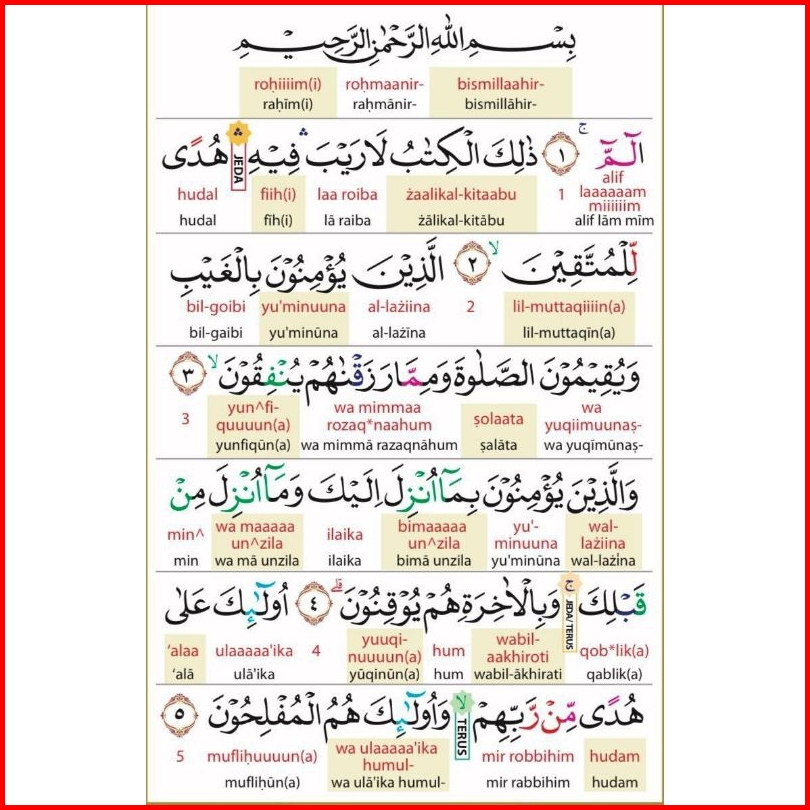 بِسْمِ اللّٰهِ الرَّحْمٰنِ الرَّحِيْمِ
bismillaahir- roḥmaanir- roḥiiiim(i)
bismillāhir- raḥmānir- raḥīm(i)
الۤمّۤ ۚ ١ ذٰلِكَ الْكِتٰبُ لَا رَيْبَ ۛ فِيْهِ ۛ هُدًى
JEDA
alif laaaaaam miiiiiim 1 żaalikal-kitaabu laa roiba fiih(i) hudal
alif lām mīm żālikal-kitābu lā raiba fīh(i) hudal
لِّلْمُتَّقِيْنَ ۙ ٢ الَّذِيْنَ يُؤْمِنُوْنَ بِالْغَيْبِ
lil-muttaqiiiin(a) 2 al-lażiina yu'minuuna bil-goibi
lil-muttaqīn(a) al-lażīna yu'minūna bil-gaibi
وَيُقِيْمُوْنَ الصَّلٰوةَ وَمِمَّا رَزَقْنٰهُمْ يُنْفِقُوْنَ ۙ ٣
wa yuqiimuunaṣ- ṣolaata wa mimmaa rozaq*naahum yun^fi-quuuun(a) 3
wa yuqīmūnaṣ- ṣalāta wa mimmā razaqnāhum yunfiqūn(a)
وَالَّذِيْنَ يُؤْمِنُوْنَ بِمَآ اُنْزِلَ اِلَيْكَ وَمَآ اُنْزِلَ مِنْ
wal-lażiina yu'-minuuna bimaaaaa un^zila ilaika wa maaaaa un^zila min^
wal-lażīna yu'minūna bimā unzila ilaika wa mā unzila min
قَبْلِكَ ۚ وَبِالْاٰخِرَةِ هُمْ يُوْقِنُوْنَ ۗ ٤ اُولٰۤىِٕكَ عَلٰى
JEDA/TERUS
qob*lik(a) wabil-aakhiroti hum yuuqi-nuuuun(a) 4 ulaaaaa'ika 'alaa
qablik(a) wabil-ākhirati hum yūqinūn(a) ulā'ika 'alā
هُدًى مِّنْ رَّبِّهِمْ ۙ وَاُولٰۤىِٕكَ هُمُ الْمُفْلِحُوْنَ ٥
TERUS
hudam mir robbihim wa ulaaaaa'ika humul- mufliḥuuuun(a) 5
hudam mir rabbihim wa ulā'ika humul- mufliḥūn(a)